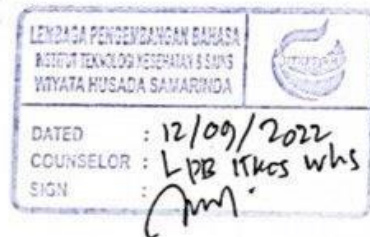 LEMBAGA PENGEMBANGAN BAHASA
INSTITUT TEKNOLOGI KESEHATAN & SAINS
WIYATA HUSADA SAMARINDA
DATED : 12/09/2022
COUNSELOR : LPB ITKES WHS
SIGN :